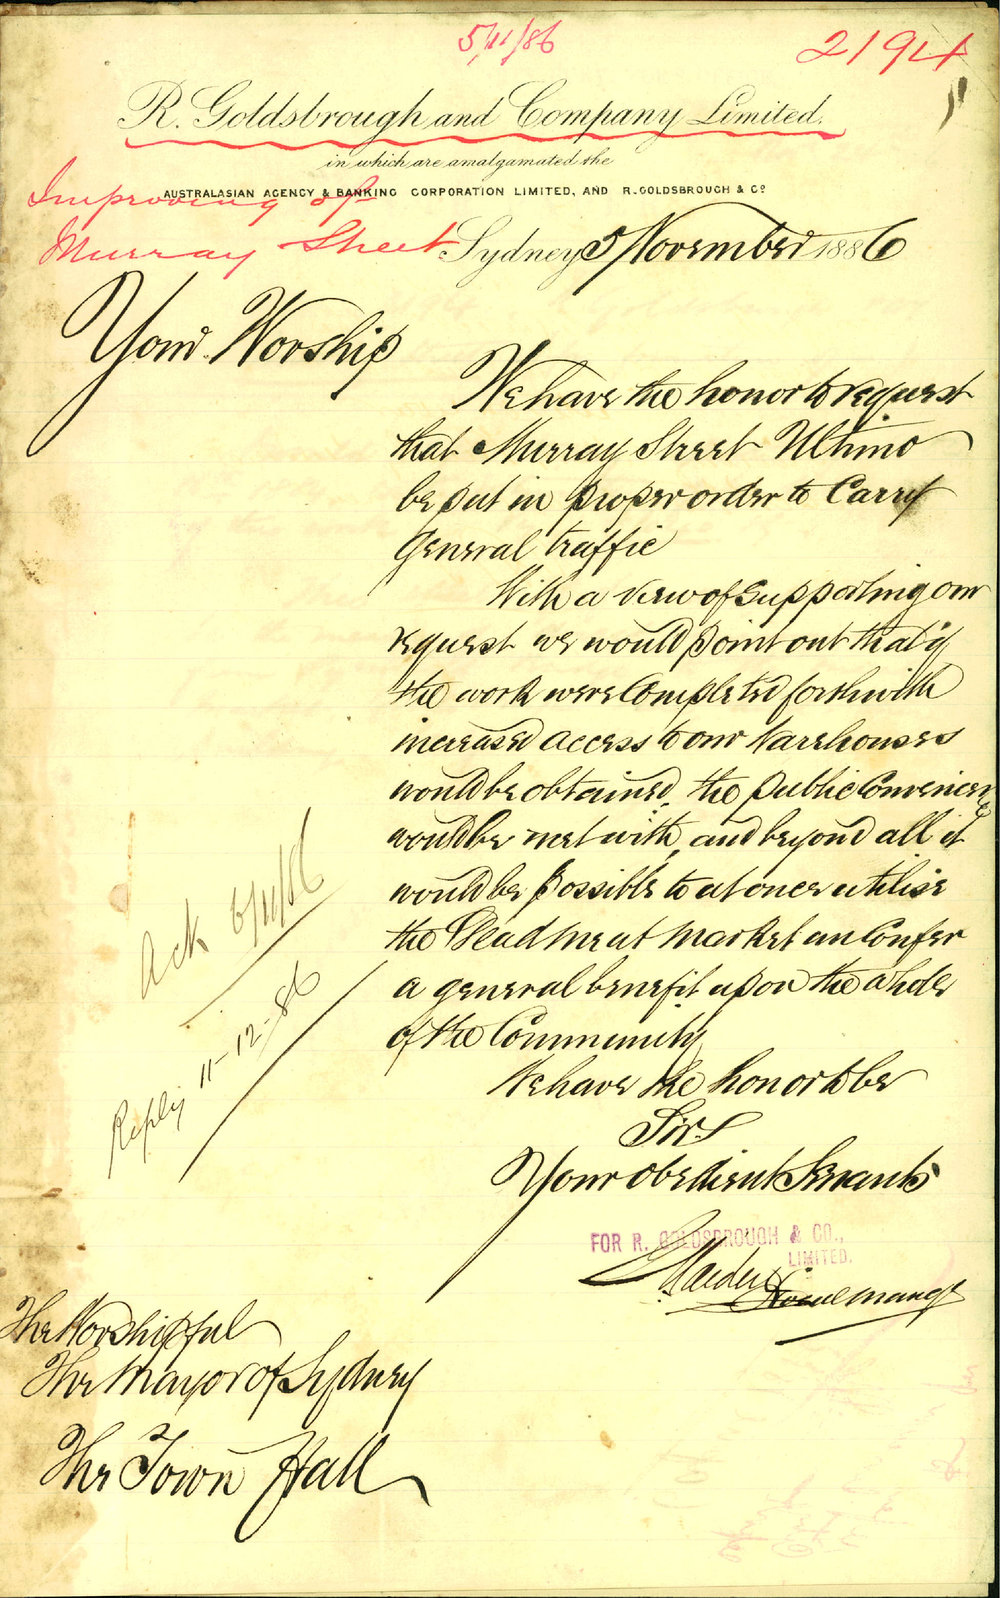 5/11/86
2194
R. Goldsbrough and Company Limited.
in which are amalgamated the
AUSTRALASIAN AGENCY & BANKING CORPORATION LIMITED, AND R. GOLDSBROUGH & Co
Improving of
Murray Street
Sydney 5 November 1886
Your Worship
We have the honor to request
that Murray Street Ultimo
be put in proper order to Carry
General traffic
With a view of supporting our
request we would point out that if
the work were Completed forthwith
increased access to our Warehouses
would be obtained, the public Convenience
would be met with, and beyond all it
would be possible to at once utilise
the Dead Meat Market an Confer
a general benefit upon the whole
of the Community
We have the honor to be
Sirs
Your obedient Servants
FOR R. GOLDSBROUGH & CO.,
LIMITED.
Maiden
Ack 6/11/86
Reply 11-12-86
The Worshipful
The Mayor of Sydney
The Town Hall